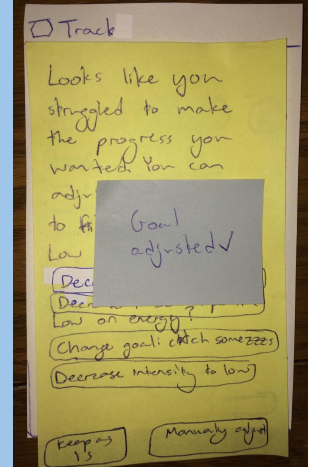 Track
Looks like you
struggled to make
the progress you
wanted. You can
adju
to
Low
Goal
adjusted ✓
Dec
Decr
Low on energy?
Change goal: catch some zzzs
Decrease intensity to low
Keep as
is
Manually adjust